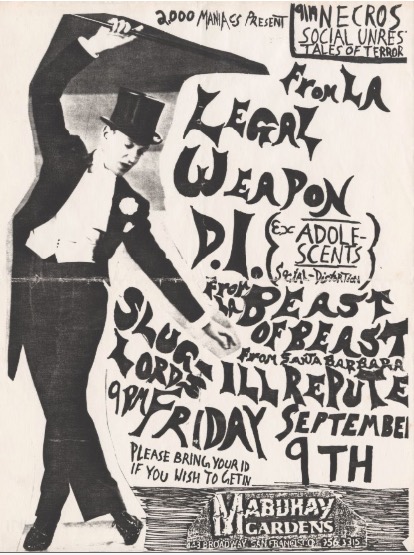 2,000 MANIACS PRESENT
9/11 NECROS
SOCIAL UNRES
TALES OF TERROR
FROM LA
LEGAL
WEAPON
D.I.
EX ADOLE-
SCENTS
Social-Distortion
FROM LA
BEAST
OF BEAST
SLUG-
LORDS
FROM SANTA BARBARA
ILL REPUTE
9PM FRIDAY SEPTEMBE
9TH
PLEASE BRING YOUR ID
IF YOU WISH TO GET IN
MABUHAY
GARDENS
BROADWAY SAN